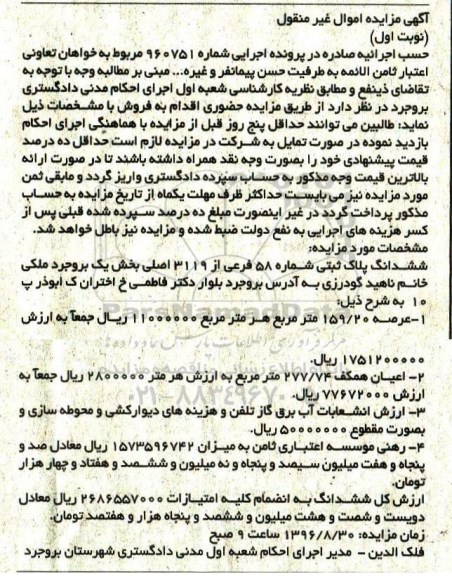 آگهی مزایده اموال غیر منقول
(نوبت اول)
حسب اجرائیه صادره در پرونده اجرایی شماره ۹۶۰۷۵۱ مربوط به خواهان تعاونی
اعتبار ثامن الائمه به طرفیت حسن پیمانفر و غیره... مبنی بر مطالبه وجه با توجه به
تقاضای ذینفع و مطابق نظریه کارشناسی شعبه اول اجرای احکام مدنی دادگستری
بروجرد در نظر دارد از طریق مزایده حضوری اقدام به فروش با مشخصات ذیل
نماید: طالبین می توانند حداقل پنج روز قبل از مزایده با هماهنگی اجرای احکام
بازدید نموده در صورت تمایل به شرکت در مزایده لازم است حداقل ده درصد
قیمت پیشنهادی خود را بصورت وجه نقد همراه داشته باشند تا در صورت ارائه
بالاترین قیمت وجه مذکور به حساب سپرده دادگستری واریز گردد و مابقی ثمن
مورد مزایده نیز می بایست حداکثر ظرف مهلت یکماه از تاریخ مزایده به حساب
مذکور پرداخت گردد در غیر اینصورت مبلغ ده درصد سپرده شده قبلی پس از
کسر هزینه های اجرایی به نفع دولت ضبط شده و مزایده نیز باطل خواهد شد.
مشخصات مورد مزایده:
ششدانگ پلاک ثبتی شماره ۵۸ فرعی از ۳۱۱۹ اصلی بخش یک بروجرد ملکی
خانم ناهید گودرزی به آدرس بروجرد بلوار دکتر فاطمی خ اختران ک ابوذر پ
۱۰ به شرح ذیل:
۱-عرصه ۱۵۹/۲۰ متر مربع هر متر مربع ۱۱۰۰۰۰۰۰ ریال جمعآ به ارزش
۱۷۵۱۲۰۰۰۰۰ ریال.
۲- اعیان همکف ۲۷۷/۷۴ متر مربع به ارزش هر متر ۲۸۰۰۰۰۰ ریال جمعآ به
ارزش ۷۷۶۷۲۰۰۰ ریال.
۳- ارزش انشعابات آب برق گاز تلفن و هزینه های دیوارکشی و محوطه سازی و
بصورت مقطوع ۵۰۰۰۰۰۰۰ ریال.
۴- رهنی موسسه اعتباری ثامن به میزان ۱۵۷۳۵۹۶۷۴۲ ریال معادل صد و
پنجاه و هفت میلیون سیصد و پنجاه و نه میلیون و ششصد و هفتاد و چهار هزار
تومان.
ارزش کل ششدانگ به انضمام کلیه امتیازات ۲۶۸۶۵۵۷۰۰۰ ریال معادل
دویست و شصت و هشت میلیون و ششصد و پنجاه هزار و هفتصد تومان.
زمان مزایده: ۱۳۹۶/۸/۳۰ ساعت ۹ صبح
فلک الدین - مدیر اجرای احکام شعبه اول مدنی دادگستری شهرستان بروجرد